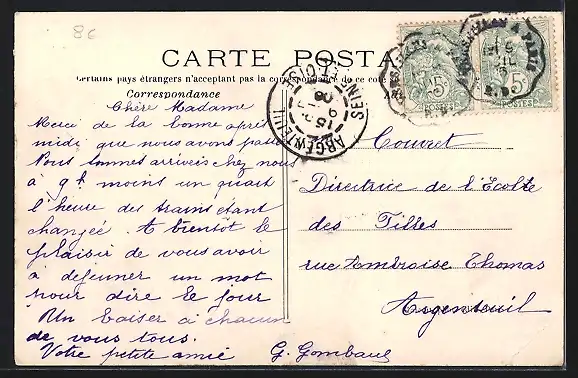 86
CARTE POSTA
Certains pays étrangers n'acceptent pas la correspondance de ce côté
Correspondance
Chère Madame
Merci de la bonne après
midi que nous avons passé
Nous sommes arrivés chez nous
à 9h moins un quart
l'heure des trains étant
changée. A bientôt le
plaisir de vous avoir
à déjeuner un mot
pour dire le jour
Un baiser à chacun
de vous tous.
Votre petite amie G. Gombaul
Couvret
Directrice de l'Ecole
des Filles
rue Ambroise Thomas
Argenteuil
ARGENTEUIL
SEINE-ET-OISE
5c
POSTES
5c
POSTES